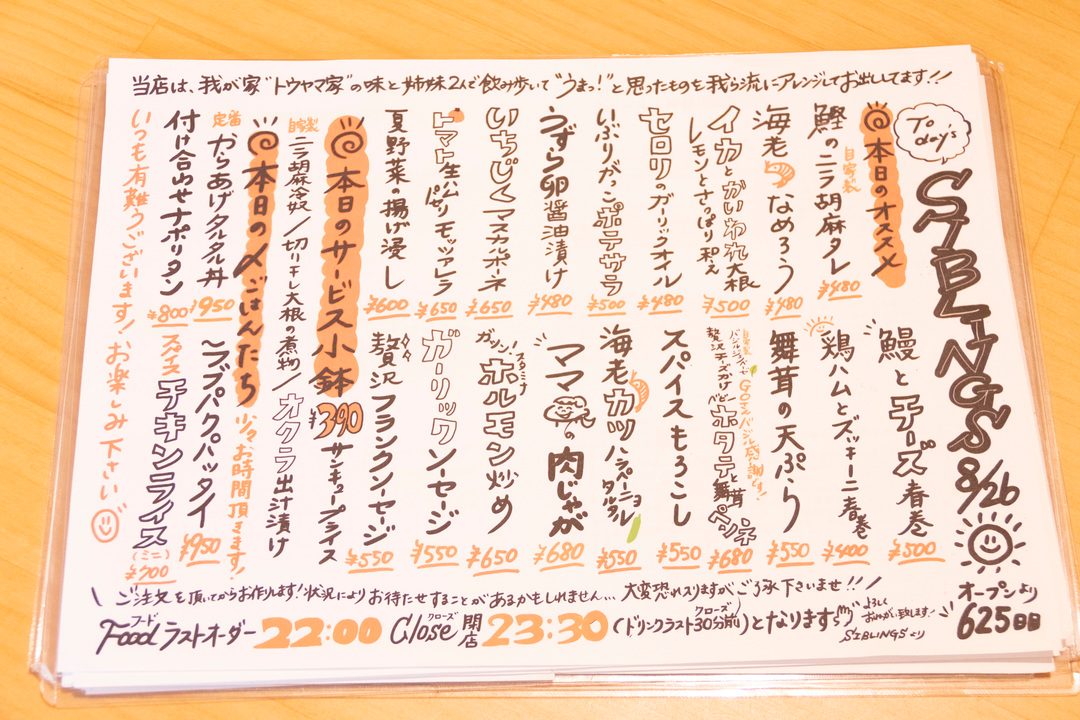 当店は、我が家"トウヤマ家"の味と姉妹2人で飲み歩いて"うまっ!"と思ったものを我ら流にアレンジしてお出ししてます!!
Today's
SIBLINGS
8/26
オープンより
625日目
本日のオススメ
鰹のニラ胡麻タレ
自家製
¥480
海老なめろう
¥480
イカとかいわれ大根
レモンとさっぱり和え
¥500
セロリのガーリックオイル
¥480
いぶりがっこポテサラ
¥500
うずら卵醤油漬け
¥480
いちじくマスカルポーネ
¥650
トマト生ハムモッツァレラ
¥650
夏野菜の揚げ浸し
¥600
鰻とチーズ春巻
¥500
鶏ハムとズッキーニ春巻
¥400
舞茸の天ぷら
¥550
自家製
バジルソースと
贅沢チーズかけ
ベビーホタテと舞茸ペンネ
¥680
スパイスもろこし
¥550
海老カツハラペーニョタルタル
¥550
ママの肉じゃが
¥680
ガツン!スタミナ
ホルモン炒め
¥650
ガーリックソーセージ
¥550
贅沢フランクソーセージ
¥550
本日のサービス小鉢
¥390
サンキュープライス
自家製
ニラ胡麻冷奴/切り干し大根の煮物/オクラ出汁漬け
本日の〆ごはんたち
少々お時間頂きます!
定番
からあげタルタル丼
¥950
付け合わせナポリタン
¥800
ラブパクパッタイ
¥950
スパイスチキンライス
(ミニ)
¥700
いつも有難うございます!お楽しみ下さい
ご注文を頂いてからお作ります!状況によりお待たせすることがあるかもしれません… 大変恐れ入りますがご了承下さいませ!!
フード
Foodラストオーダー22:00 Close クローズ 閉店23:30(ドリンクラスト クローズ 30分前)となります
よろしくお願い致します!
SIBLINGSより